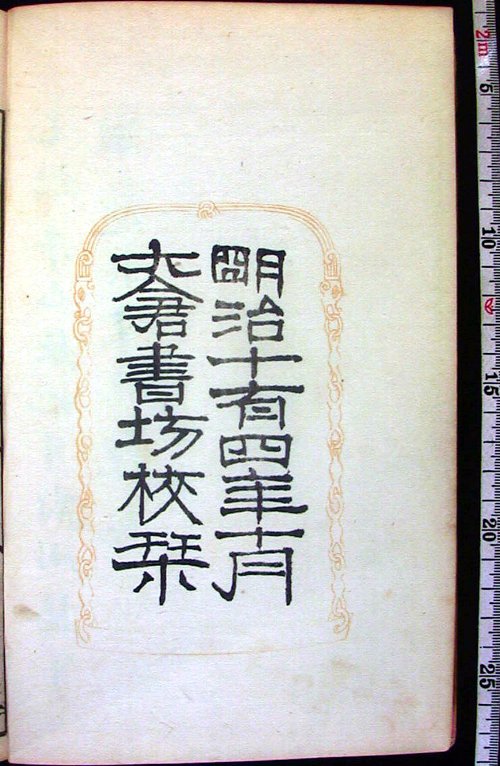 朙治十有四年十月
亣倉書坊校栞
2m
5
10
15
20
25